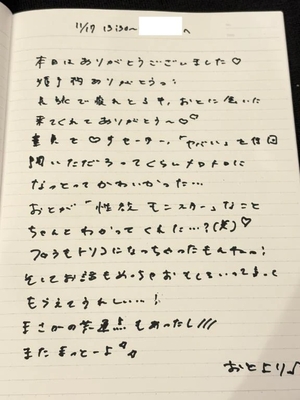 11/17 13:30〜 へ
本日はありがとうございました♡
ありがとう
疲れとる中、おとに会いに
来てくれてありがとう〜♡
と♡す セーター、「ヤバい」を
聞いただろってくらいメロメロに
なっとってかわいかった…
おとが「性欲モンスター」なこと
ちゃんとわかってくれた…?(笑)♡
トリコになっちゃったもんねー!
そしてお話もめっちゃおもしろい
もうえてうれしい…!
まさかの共通点もあったし///
また まっとーよ
おとより♪